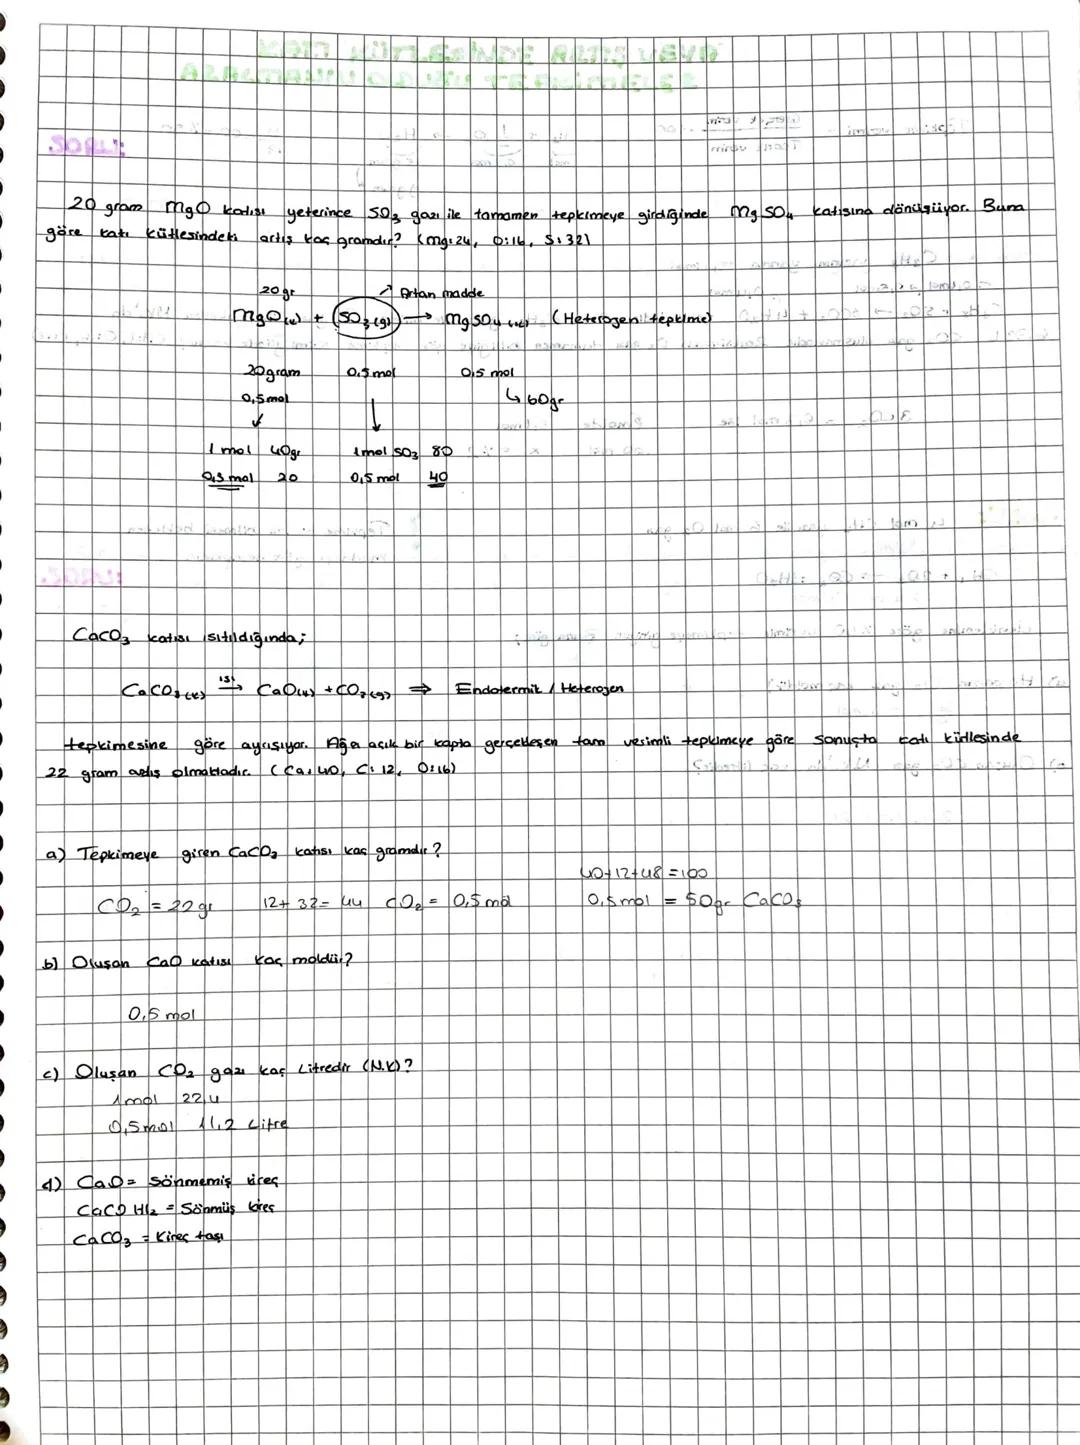 SORU:
20 gram MgO katısı yeterince SO3 gazı ile tamamen tepkimeye girdiğinde MgSO4 katısına dönüşüyor. Buna
göre katı kütlesindeki artış kaç gramdır? (Mg:24, O:16, S:32)
20gr
Artan madde
MgO(k) + SO3(g) → MgSO4(k) (Heterojen tepkime)
20gram 0,5mol 0,5 mol
0,5mol ↳ 60gr
1 mol 40gr 1mol SO3 80
0,5 mol 20 0,5 mol 40
SORU:
CaCO3 katısı ısıtıldığında;
CaCO3(k) ısı → CaO(k) + CO2(g) ⇒ Endotermik / Heterojen
tepkimesine göre ayrışıyor. Ağzı açık bir kapta gerçekleşen tam verimli tepkimeye göre sonuçta katı kütlesinde
22 gram azalış olmaktadır. (Ca:40, C:12, O:16)
a) Tepkimeye giren CaCO3 katısı kaç gramdır?
40+12+48=100
CO2 = 22gr 12+32=44 CO2= 0,5mol 0,5mol = 50gr CaCO3
b) Oluşan CaO katısı kaç moldür?
0,5 mol
c) Oluşan CO2 gazı kaç Litredir (N.K)?
1mol 22,4
0,5mol 11,2 Litre
d) CaO= Sönmemiş kireç
Ca(OH)2 = Sönmüş kireç
CaCO3 = Kireç taşı